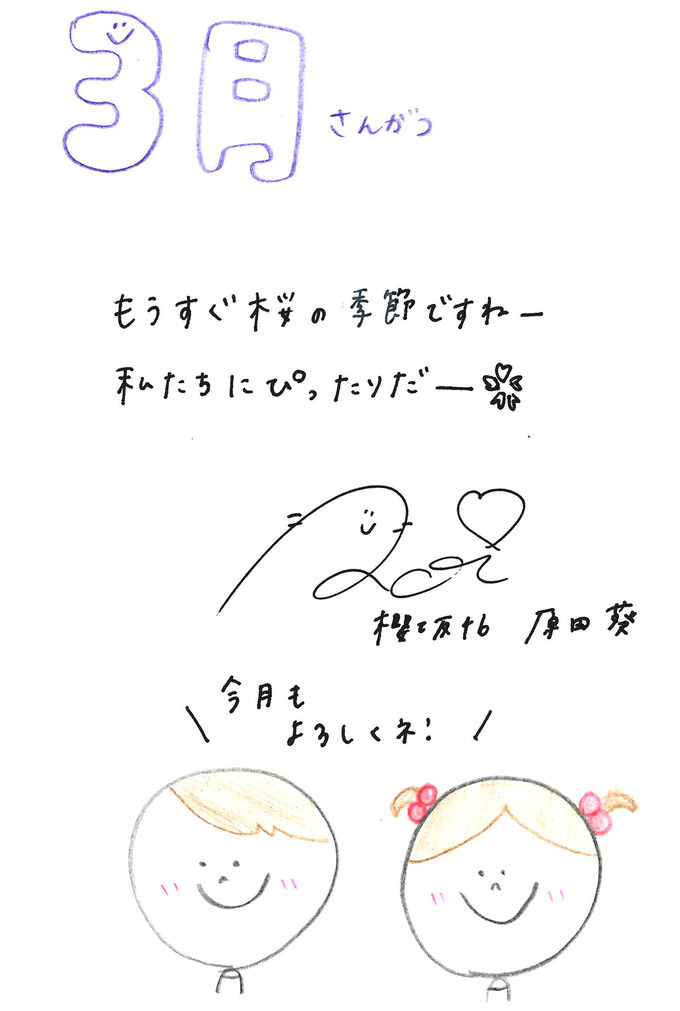 3月 さんがつ
もうすぐ桜の季節ですねー
私たちにぴったりだー
櫻坂46 原田葵
今月も
よろしくネ!